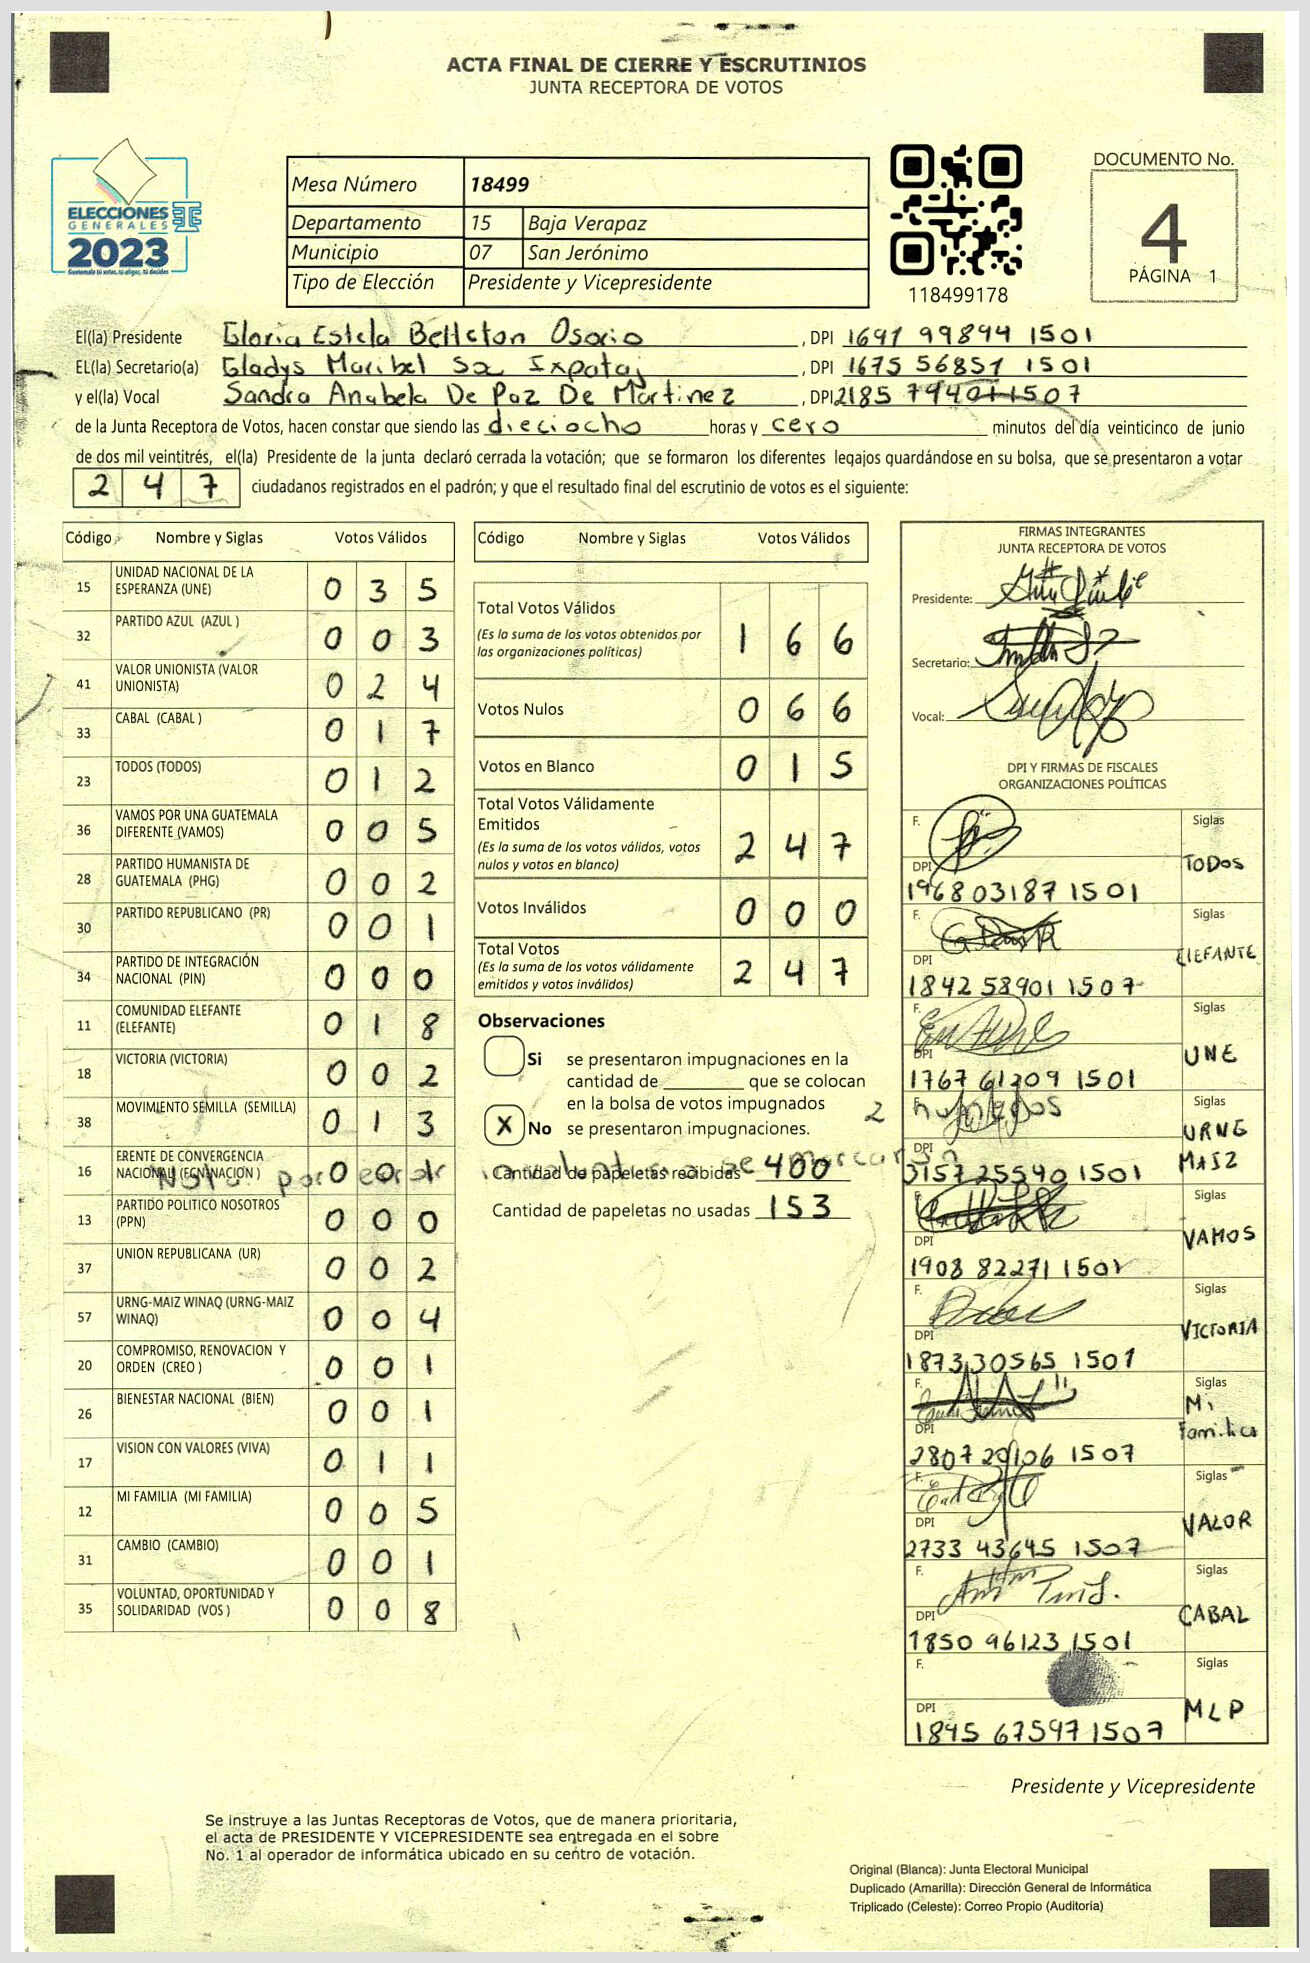 ACTA FINAL DE CIERRE Y ESCRUTINIOS
JUNTA RECEPTORA DE VOTOS
ELECCIONES
GENERALES
2023
Mesa Número 18499
Departamento 15 Baja Verapaz
Municipio 07 San Jerónimo
Tipo de Elección Presidente y Vicepresidente
118499178
DOCUMENTO No.
4
PÁGINA 1
El(la) Presidente Gloria Estela Belleton Osorio, DPI 1691 99894 1501
EL(la) Secretario(a) Gladys Maribel Sa Ixpataj, DPI 1675 56851 1501
y el(la) Vocal Sandra Anabela De Paz De Martinez, DPI 2185 79401 1507
de la Junta Receptora de Votos, hacen constar que siendo las dieciocho horas y cero minutos del día veinticinco de junio
de dos mil veintitrés, el(la) Presidente de la junta declaró cerrada la votación; que se formaron los diferentes legajos guardándose en su bolsa, que se presentaron a votar
247 ciudadanos registrados en el padrón; y que el resultado final del escrutinio de votos es el siguiente:
Código Nombre y Siglas Votos Válidos
15 UNIDAD NACIONAL DE LA ESPERANZA (UNE) 0 3 5
32 PARTIDO AZUL (AZUL ) 0 0 3
41 VALOR UNIONISTA (VALOR UNIONISTA) 0 2 4
33 CABAL (CABAL ) 0 1 7
23 TODOS (TODOS) 0 1 2
36 VAMOS POR UNA GUATEMALA DIFERENTE (VAMOS) 0 0 5
28 PARTIDO HUMANISTA DE GUATEMALA (PHG) 0 0 2
30 PARTIDO REPUBLICANO (PR) 0 0 1
34 PARTIDO DE INTEGRACIÓN NACIONAL (PIN) 0 0 0
11 COMUNIDAD ELEFANTE (ELEFANTE) 0 1 8
18 VICTORIA (VICTORIA) 0 0 2
38 MOVIMIENTO SEMILLA (SEMILLA) 0 1 3
16 FRENTE DE CONVERGENCIA NACIONAL (FCN NACION ) 0 0 1
13 PARTIDO POLITICO NOSOTROS (PPN) 0 0 0
37 UNION REPUBLICANA (UR) 0 0 2
57 URNG-MAIZ WINAQ (URNG-MAIZ WINAQ) 0 0 4
20 COMPROMISO, RENOVACION Y ORDEN (CREO ) 0 0 1
26 BIENESTAR NACIONAL (BIEN) 0 0 1
17 VISION CON VALORES (VIVA) 0 1 1
12 MI FAMILIA (MI FAMILIA) 0 0 5
31 CAMBIO (CAMBIO) 0 0 1
35 VOLUNTAD, OPORTUNIDAD Y SOLIDARIDAD (VOS ) 0 0 8
Código Nombre y Siglas Votos Válidos
Total Votos Válidos 1 6 6
(Es la suma de los votos obtenidos por
las organizaciones políticas)
Votos Nulos 0 6 6
Votos en Blanco 0 1 5
Total Votos Válidamente
Emitidos 2 4 7
(Es la suma de los votos válidos, votos
nulos y votos en blanco)
Votos Inválidos 0 0 0
Total Votos 2 4 7
(Es la suma de los votos válidamente
emitidos y votos inválidos)
Observaciones
Si se presentaron impugnaciones en la
cantidad de ________ que se colocan
en la bolsa de votos impugnados
X No se presentaron impugnaciones.
Nota por error involuntario se marcaron 2
Cantidad de papeletas recibidas 400
Cantidad de papeletas no usadas 153
FIRMAS INTEGRANTES
JUNTA RECEPTORA DE VOTOS
Presidente:
Secretario:
Vocal:
DPI Y FIRMAS DE FISCALES
ORGANIZACIONES POLÍTICAS
F. Siglas
DPI TODOS
1968 03187 1501
F. Siglas
DPI ElEFANTE
1842 58901 1507
F. Siglas
DPI UNE
1767 61209 1501
F. Siglas
DPI URNG MAIZ
3157 25540 1501
F. Siglas
DPI VAMOS
1908 82271 1501
F. Siglas
DPI VICTORIA
1873 30565 1501
F. Siglas
DPI Mi Familia
2807 29106 1507
F. Siglas
DPI VALOR
2733 43645 1507
F. Siglas
DPI CABAL
1850 96123 1501
F. Siglas
DPI MLP
1845 67597 1507
Presidente y Vicepresidente
Se instruye a las Juntas Receptoras de Votos, que de manera prioritaria,
el acta de PRESIDENTE Y VICEPRESIDENTE sea entregada en el sobre
No. 1 al operador de informática ubicado en su centro de votación.
Original (Blanca): Junta Electoral Municipal
Duplicado (Amarilla): Dirección General de Informática
Triplicado (Celeste): Correo Propio (Auditoría)